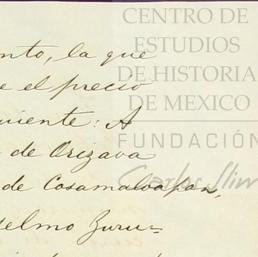 CENTRO DE
ESTUDIOS
DE HISTORIA
DE MEXICO
FUNDACIÓN
Carlos Slim
ento, la que
e el precio
quiente: A
de Orizava
de Cosamaloapan,
selmo Zuru=